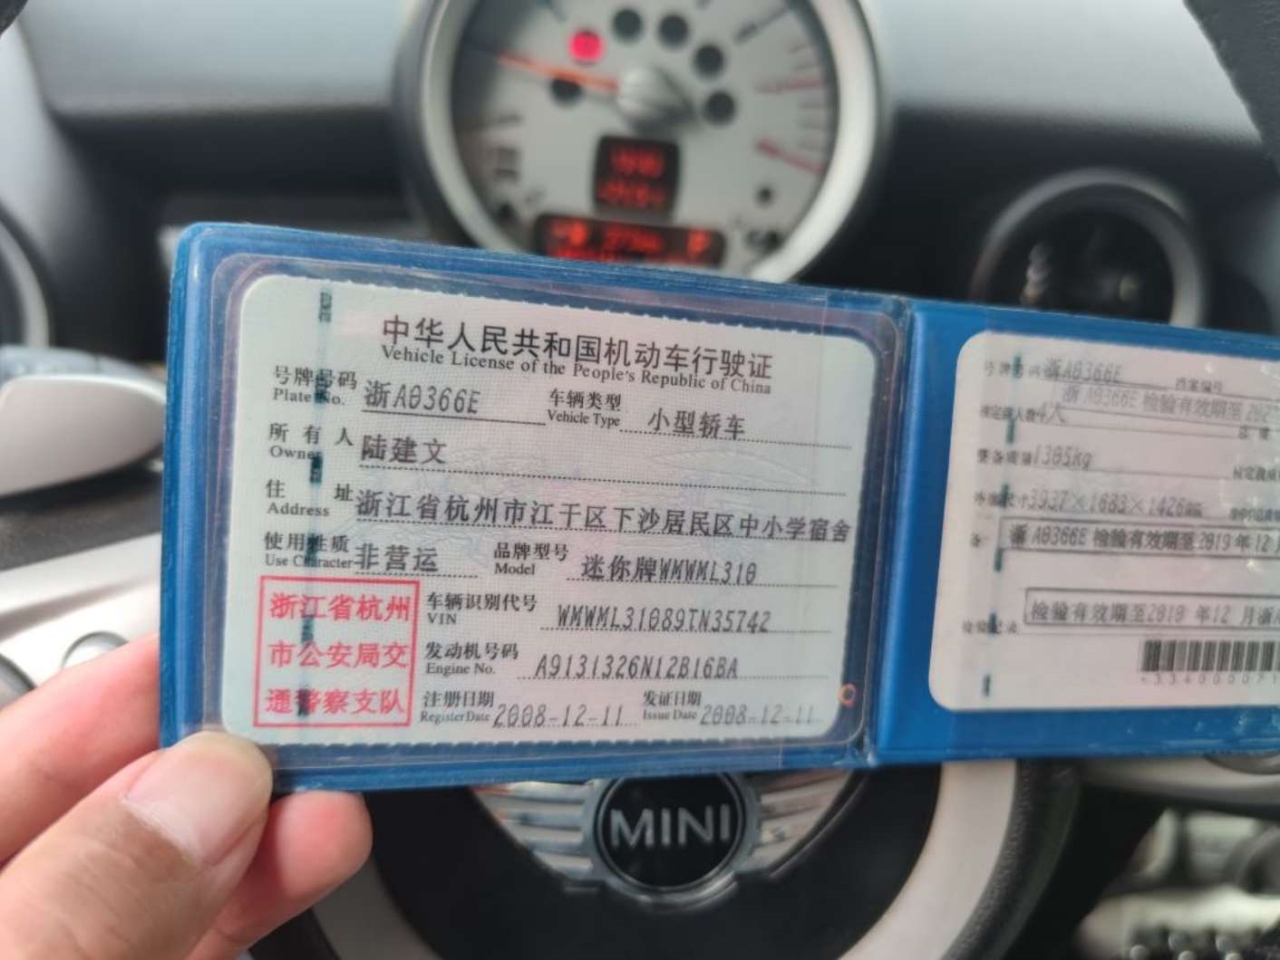 中华人民共和国机动车行驶证
Vehicle License of the People's Republic of China
号牌号码 浙A0366E 车辆类型 小型轿车
Plate No. Vehicle Type
所有人 陆建文
Owner
住址 浙江省杭州市江干区下沙居民区中小学宿舍
Address
使用性质 非营运 品牌型号 迷你牌WMWML310
Use Character Model
浙江省杭州
市公安局交
通警察支队
车辆识别代号 WMWML31089TN35742
VIN
发动机号码 A9131326N12B16BA
Engine No.
注册日期 2008-12-11 发证日期 2008-12-11
Register Date Issue Date
号牌号码 浙A0366E 档案编号
浙A0366E 检验有效期至202
4人
整备质量 1305kg
3937×1683×1426mm
浙A0366E 检验有效期至2019年12月
检验有效期至2010年12月浙
MINI